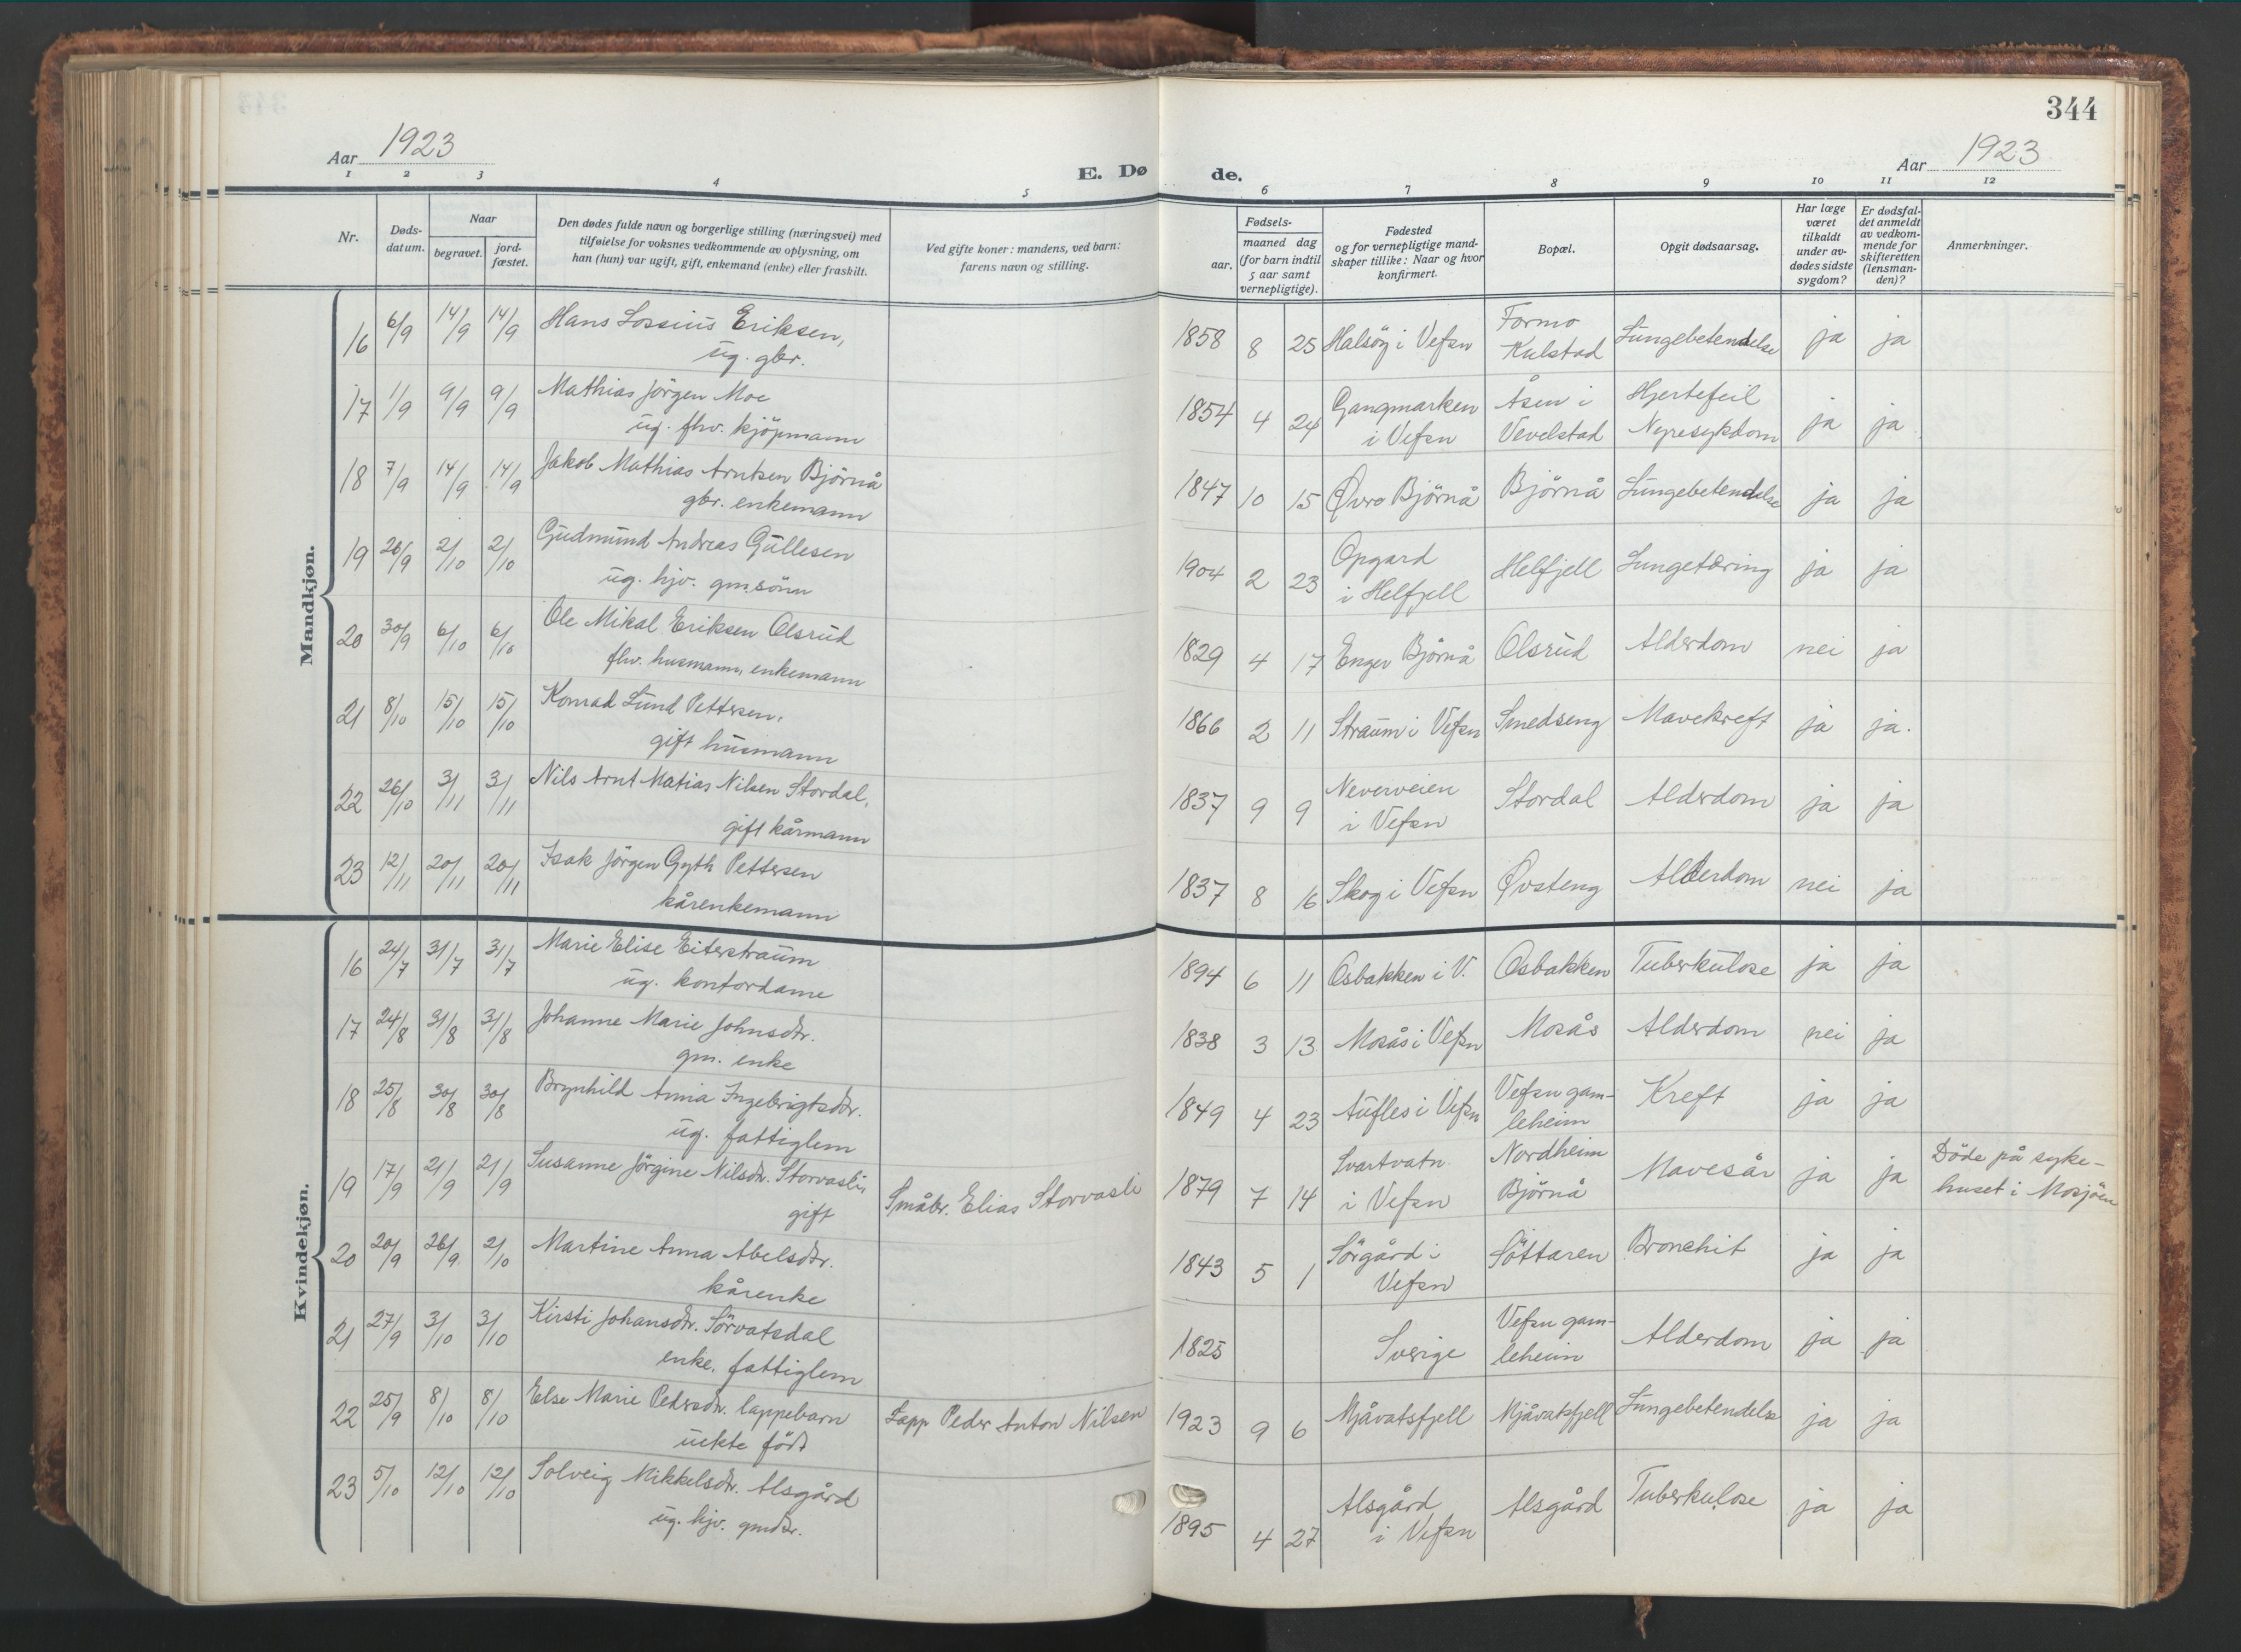 344
Aar 1923
Aar 1923
E. Dø de.
1 2 3 4 5 6 7 8 9 10 11 12
Nr.
Døds-
datum.
Naar
begravet.
jord-
fæstet.
Den dødes fulde navn og borgerlige stilling (næringsvei) med
tilføielse for voksnes vedkommende av oplysning, om
han (hun) var ugift, gift, enkemand (enke) eller fraskilt.
Ved gifte koner: mandens, ved barn:
farens navn og stilling.
Fødsels-
aar.
maaned dag
(for barn indtil
5 aar samt
vernepligtige).
Fødested
og for vernepligtige mand-
skaper tillike: Naar og hvor
konfirmert.
Bopæl.
Opgit dødsaarsag.
Har læge
været
tilkaldt
under av-
dødes sidste
sygdom?
Er dødsfal-
det anmeldt
av vedkom-
mende for
skifteretten
(lensman-
den)?
Anmerkninger.
Mandkjøn.
16 6/9 14/9 14/9 Hans Lossius Eriksen,
ug. gbr.
1858 8 25 Halsöy i Vefsn Formo
Kulstad Lungebetendelse ja ja
17 1/9 9/9 9/9 Mathias Jörgen Moe
ug. fhv. kjöpmann
1854 4 24 Gangmarken
i Vefsn Åsen i
Vevelstad Hjertefeil
Nyresykdom ja ja
18 7/9 14/9 14/9 Jakob Mathias Arntsen Björnå
gbr. enkemann
1847 10 15 Øvre Björnå Björnå Lungebetendelse ja ja
19 26/9 2/10 2/10 Gudmund Andreas Gullesen
ug. hjv. gm.sönn
1904 2 23 Opgard
i Helfjell Helfjell Lungetæring ja ja
20 30/9 6/10 6/10 Ole Mikal Eriksen Olsrud
fhv. husmann, enkemann
1829 4 17 Enger Björnå Olsrud Alderdom nei ja
21 8/10 15/10 15/10 Konrad Lund Pettersen,
gift husmann
1866 2 11 Straum i Vefsn Smedseng Mavekreft ja ja.
22 26/10 3/11 3/11 Nils Arnt Matias Nilsen Stordal,
gift kårmann
1837 9 9 Neverveien
i Vefsn Stordal Alderdom ja ja
23 12/11 20/11 20/11 Isak Jörgen Gyth Pettersen
kårenkemann
1837 8 16 Skog i Vefsn Øvsteng Alderdom nei ja
Kvindekjøn.
16 24/7 31/7 31/7 Marie Elise Eiterstraum
ug. kontordame
1894 6 11 Osbakken i V. Osbakken Tuberkulose ja ja
17 24/8 31/8 31/8 Johanne Marie Johnsdtr.
gm. enke
1838 3 13 Mosås i Vefsn Mosås Alderdom nei ja
18 25/8 30/8 30/8 Brynhild Anna Ingebrigtsdtr.
ug. fattiglem
1849 4 23 Aufles i Vefsn Vefsn gam-
leheim Kreft ja ja
19 17/9 21/9 21/9 Susanne Jörgine Nilsdtr. Storvasli
gift Småbr. Elias Storvasli
1879 7 14 Svartvatn
i Vefsn Nordheim
Björnå Mavesår ja ja Döde på syke-
huset i Mosjöen
20 20/9 26/9 2/10 Martine Anna Abelsdtr.
kårenke
1843 5 1 Sörgård i
Vefsn Söttaren Bronchit ja ja
21 27/9 3/10 3/10 Kirsti Johansdtr. Sörvatsdal
enke. fattiglem
1825 Sverige Vefsn gam-
leheim Alderdom ja ja
22 25/9 8/10 8/10 Else Marie Pedersdtr. lappebarn
uekte född Lapp Peder Anton Nilsen
1923 9 6 Mjåvatsfjell Mjåvatsfjell Lungebetendelse ja ja
23 5/10 12/10 12/10 Solveig Mikkelsdtr. Alsgård
ug. hjv. gmdtr.
1895 4 27 Alsgård
i Vefsn Alsgård Tuberkulose ja ja